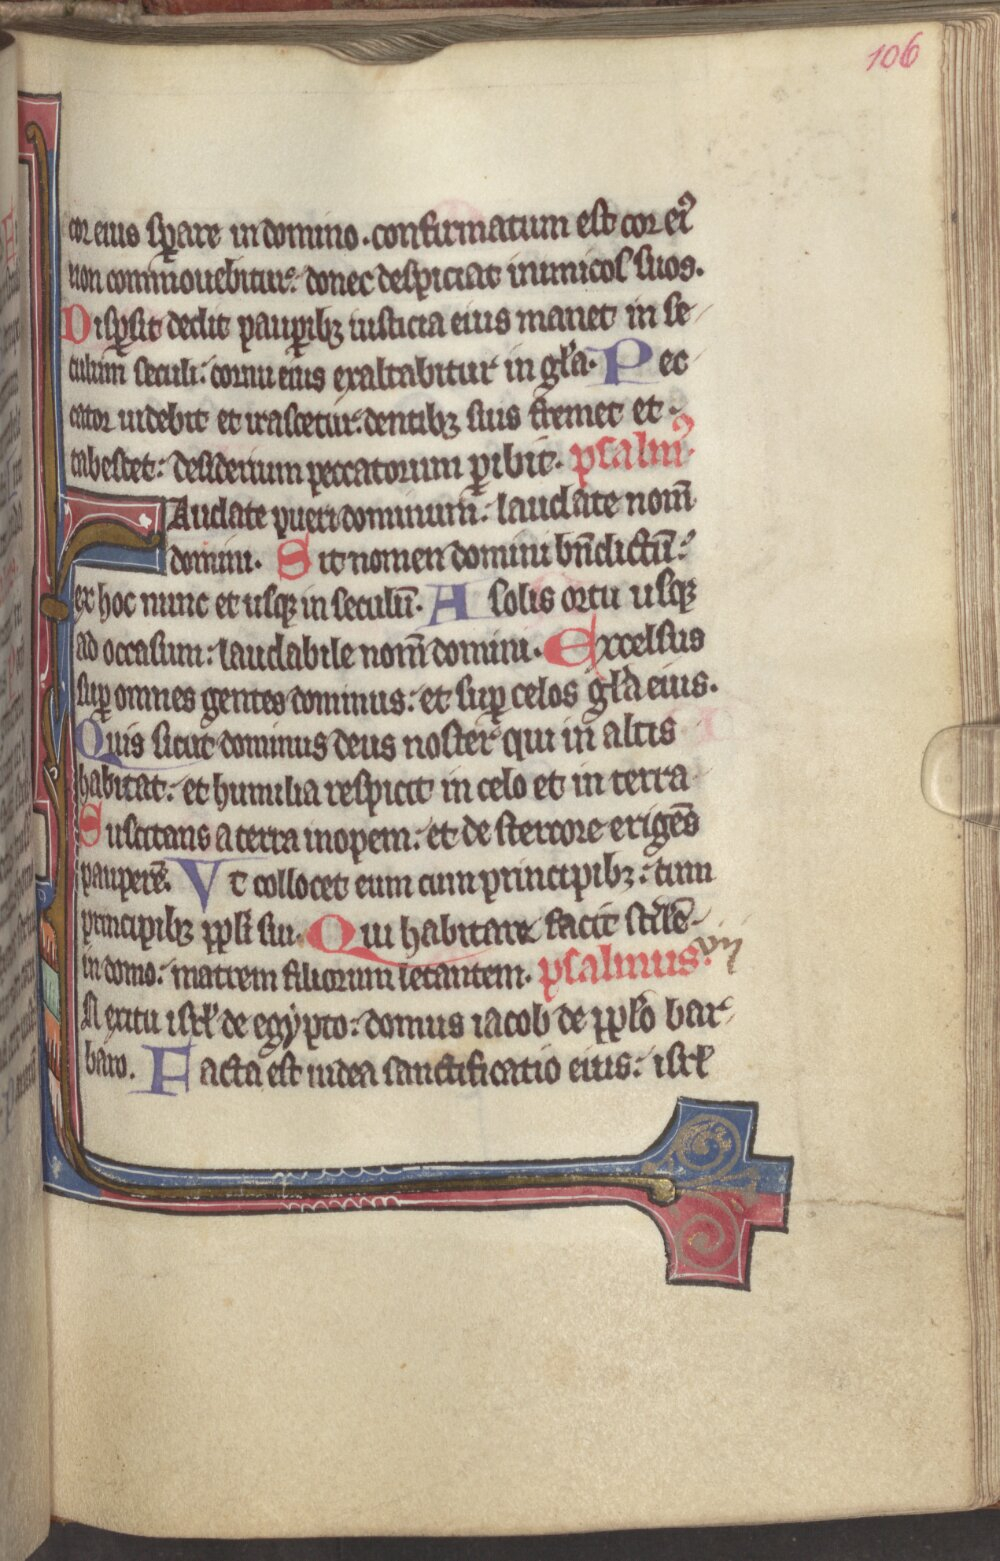 106
cor eius sꝑare in domino. confirmatum est cor ei⁹
non commouebitur: donec despiciat inimicos suos.
Disꝑsit dedit pauꝑibꝫ iusticia eius manet in se
culum seculi: cornu eius exaltabitur in gl̄a. Pec
cator uidebit et irascetur: dentibꝫ suis fremet et
tabescet: desiderium peccatorum ꝑibit. psalm⁹.
Laudate pueri dominum: laudate nom̄
domini. Sit nomen domini bn̄dictū:
ex hoc nunc et usqꝫ in seculū. A solis ortu usqꝫ
ad occasum: laudabile nom̄ domini. Excelsus
suꝑ omnes gentes dominus: et suꝑ celos gl̄a eius.
Quis sicut dominus deus noster qui in altis
habitat: et humilia respicit in celo et in terra
Suscitans a terra inopem: et de stercore erigēs
pauperē. Vt collocet eum cum principibꝫ: cum
principibꝫ ppl̄i sui. Qui habitare facit st̄ilē
in domo: matrem filiorum letantem. psalmus.
In exitu isrl̄ de egypto: domus iacob de ppl̄o bar
baro. Facta est iudea sanctificatio eius: isrl̄